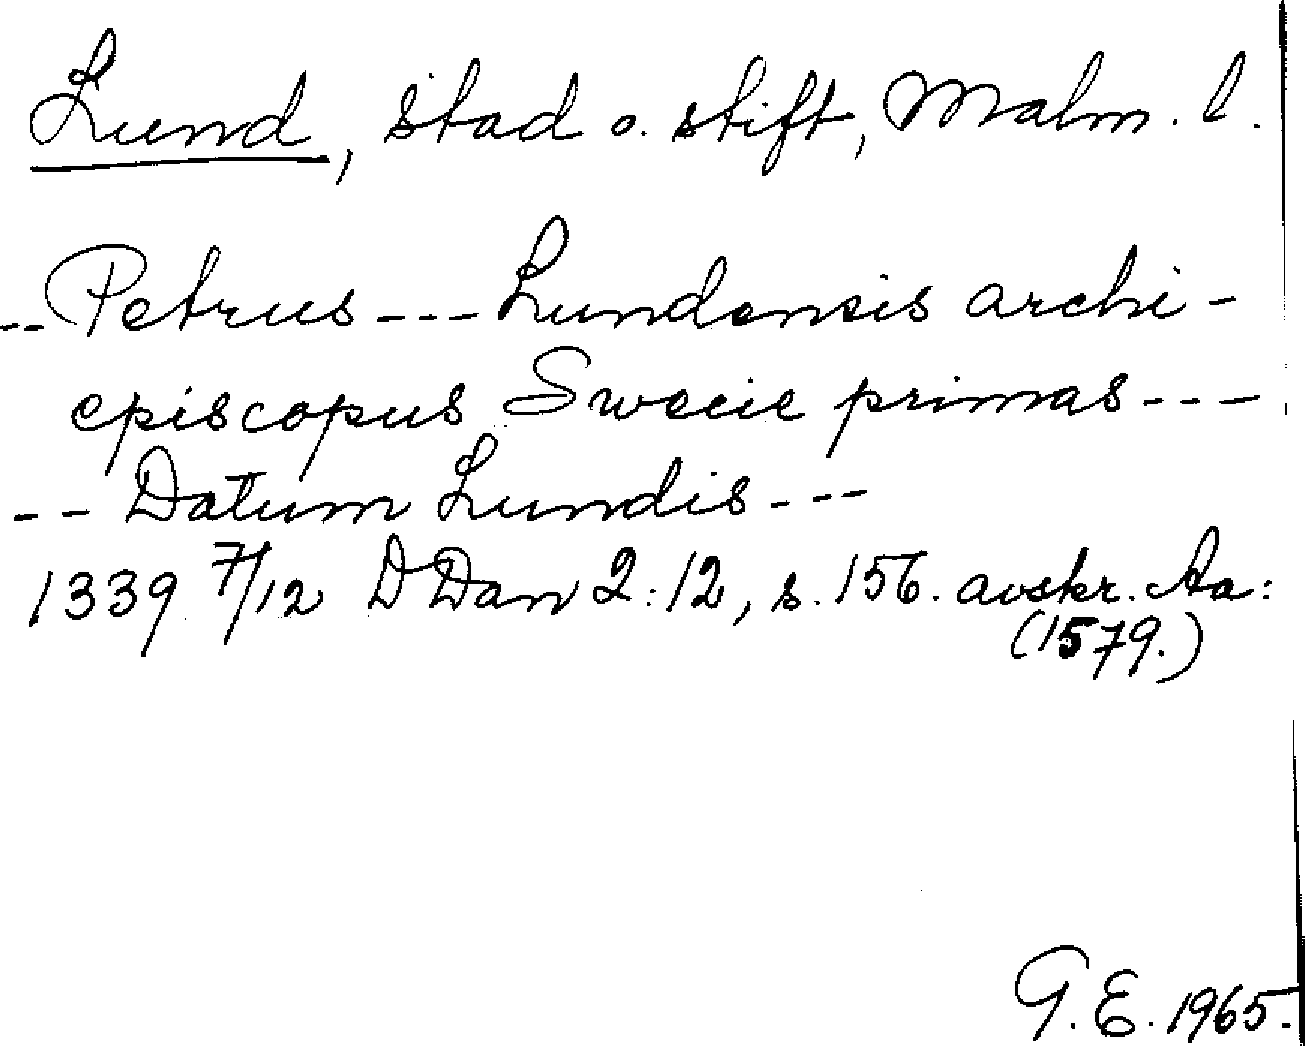 Lund, stad o. stift, Malm. l.
-- Petrus --- Lundensis archi-
episcopus Swecie primas ---
-- Datum Lundis ---
1339 7/12 DDan 2:12, s. 156. avskr. Aa:
(1579.)
G.E. 1965.